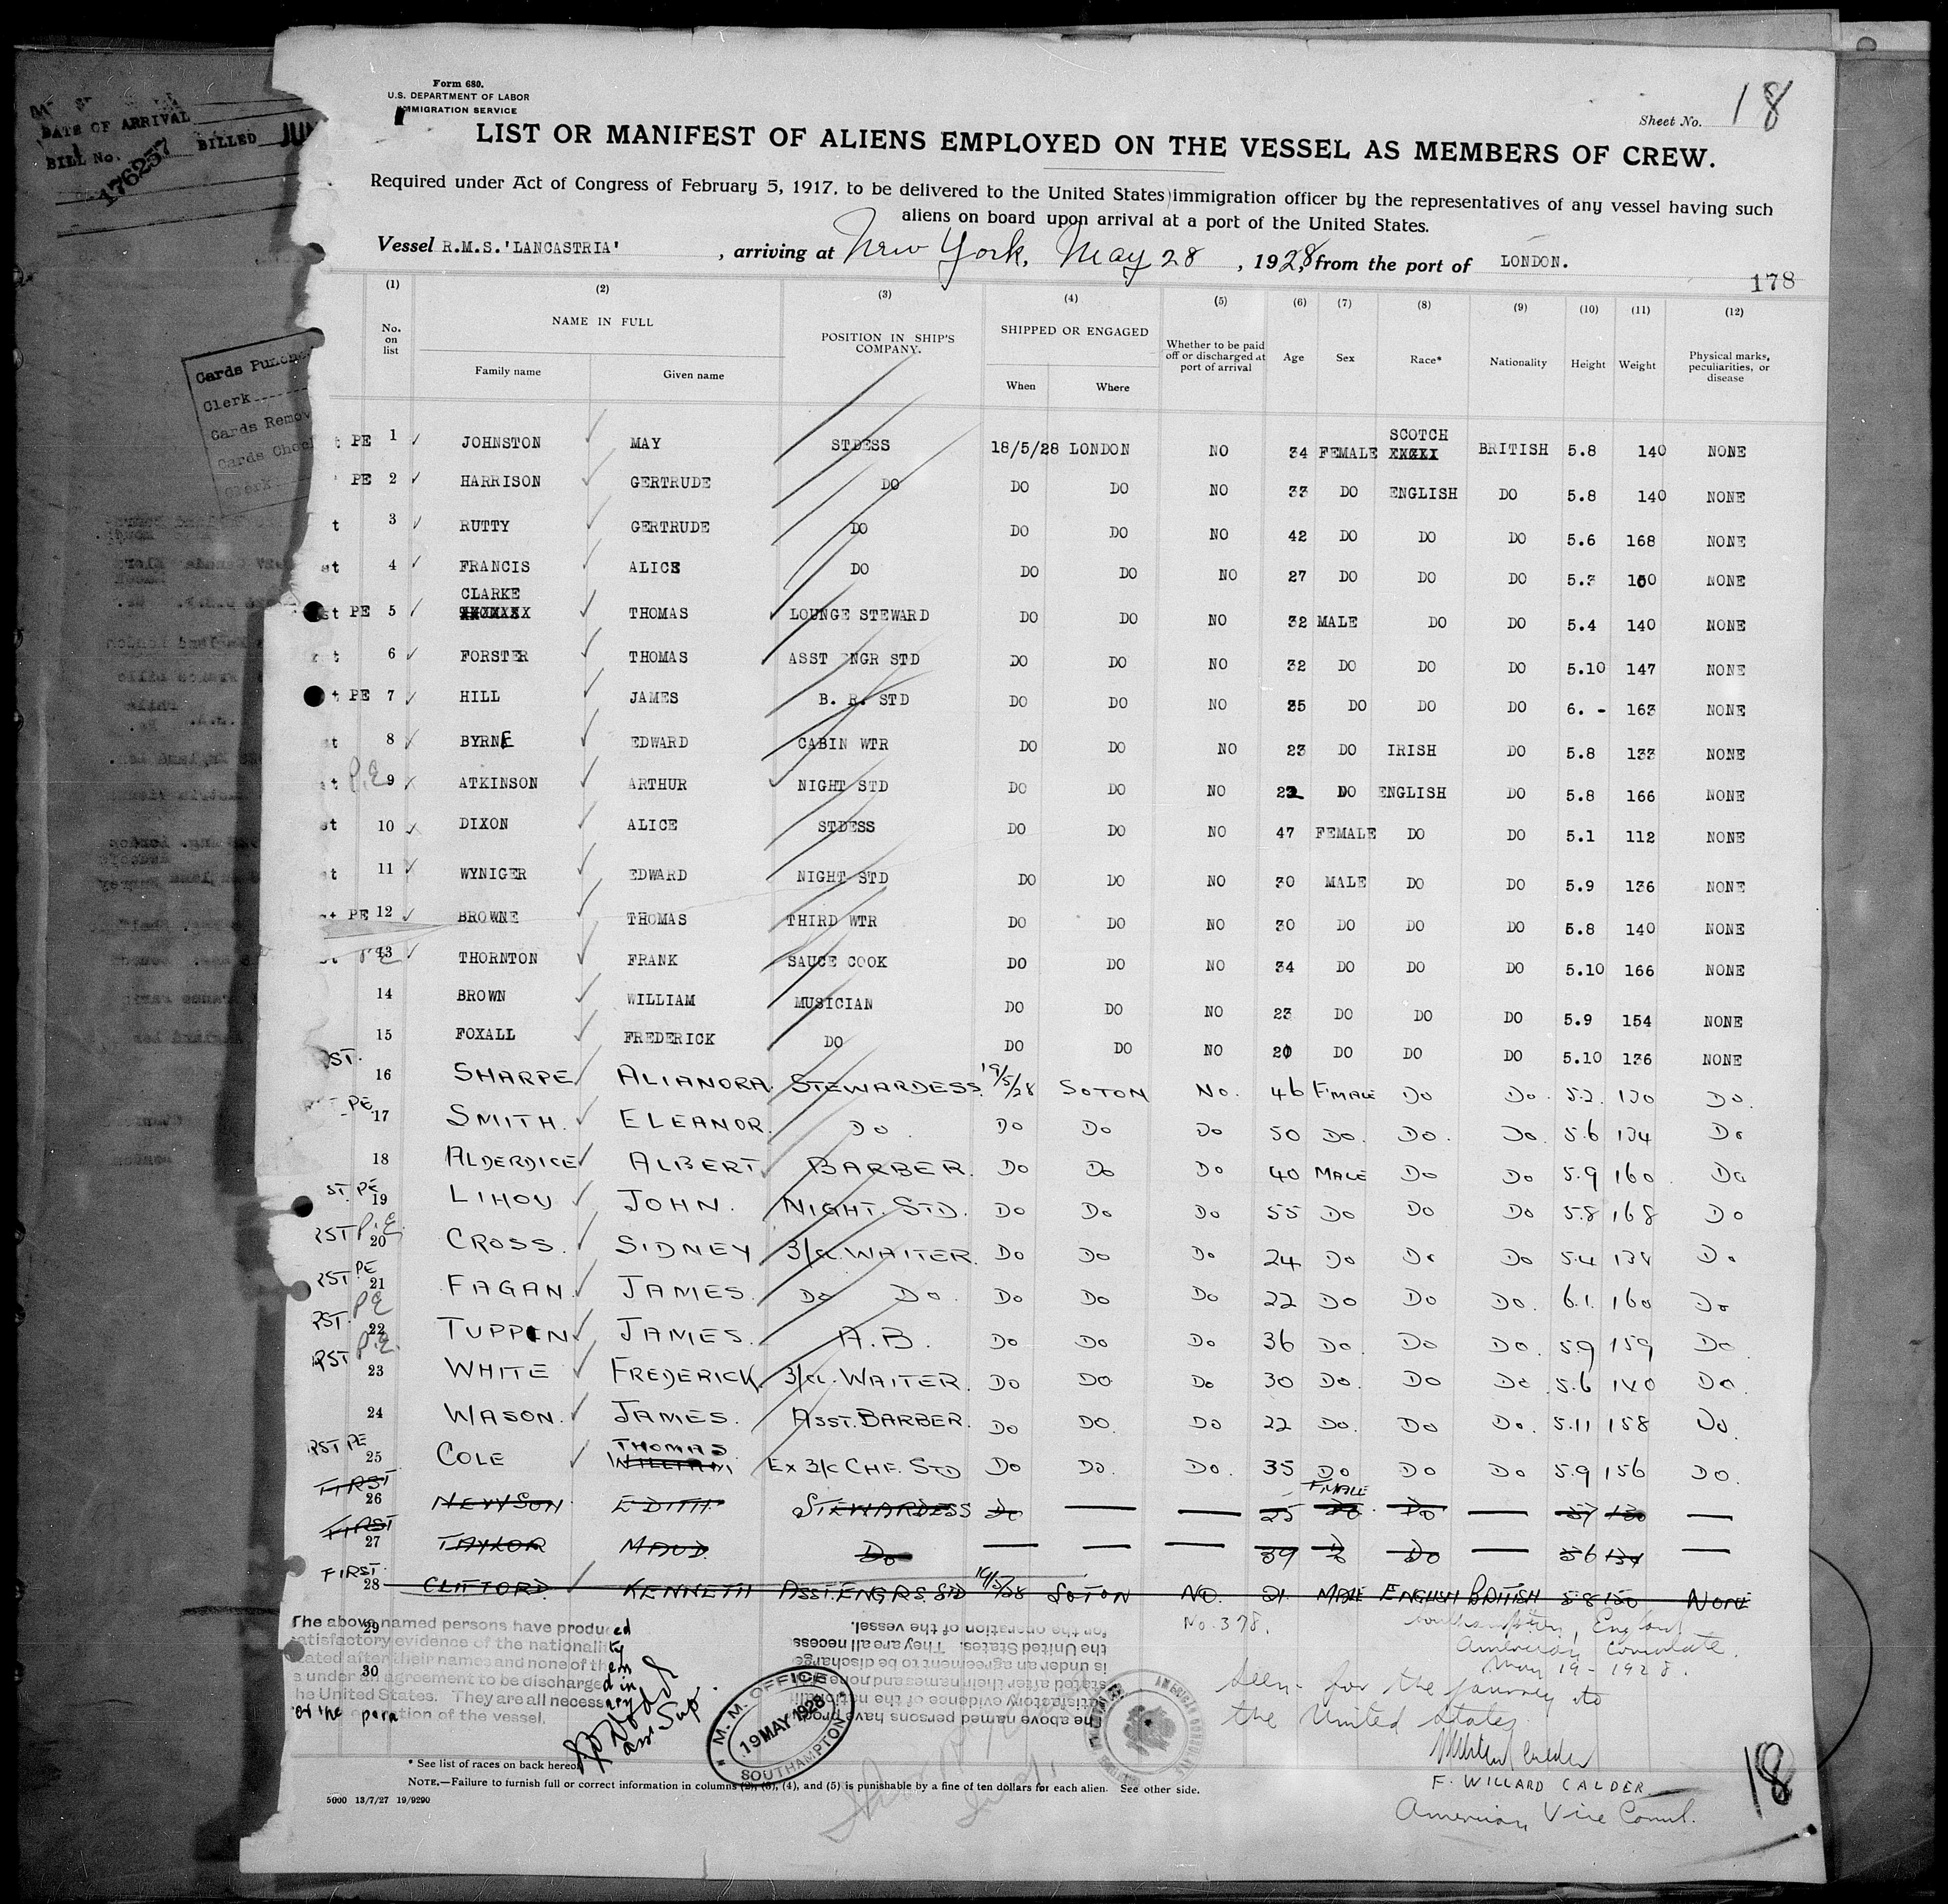 DATE OF ARRIVAL
BILL No. 176257 BILLED JUN
Cards Punched
Clerk
Cards Remov
Cards Chec
Clerk
Form 680.
U.S. DEPARTMENT OF LABOR
IMMIGRATION SERVICE
Sheet No. 18
LIST OR MANIFEST OF ALIENS EMPLOYED ON THE VESSEL AS MEMBERS OF CREW.
Required under Act of Congress of February 5, 1917, to be delivered to the United States immigration officer by the representatives of any vessel having such
aliens on board upon arrival at a port of the United States.
Vessel R.M.S.'LANCASTRIA' , arriving at New York, May 28 , 1928, from the port of LONDON.
178
(1) (2) (3) (4) (5) (6) (7) (8) (9) (10) (11) (12)
No. on list NAME IN FULL POSITION IN SHIP'S COMPANY. SHIPPED OR ENGAGED Whether to be paid off or discharged at port of arrival Age Sex Race* Nationality Height Weight Physical marks, peculiarities, or disease
Family name Given name When Where
PE 1 JOHNSTON MAY STDESS 18/5/28 LONDON NO 34 FEMALE SCOTCH BRITISH 5.8 140 NONE
PE 2 HARRISON GERTRUDE DO DO DO NO 33 DO ENGLISH DO 5.8 140 NONE
t 3 RUTTY GERTRUDE DO DO DO NO 42 DO DO DO 5.6 168 NONE
st 4 FRANCIS ALICE DO DO DO NO 27 DO DO DO 5.3 150 NONE
st PE 5 CLARKE THOMAS LOUNGE STEWARD DO DO NO 32 MALE DO DO 5.4 140 NONE
t 6 FORSTER THOMAS ASST ENGR STD DO DO NO 32 DO DO DO 5.10 147 NONE
t PE 7 HILL JAMES B. R. STD DO DO NO 35 DO DO DO 6. - 163 NONE
st 8 BYRNE EDWARD CABIN WTR DO DO NO 23 DO IRISH DO 5.8 133 NONE
st P.E 9 ATKINSON ARTHUR NIGHT STD DO DO NO 22 DO ENGLISH DO 5.8 166 NONE
st 10 DIXON ALICE STDESS DO DO NO 47 FEMALE DO DO 5.1 112 NONE
st 11 WYNIGER EDWARD NIGHT STD DO DO NO 30 MALE DO DO 5.9 136 NONE
st PE 12 BROWNE THOMAS THIRD WTR DO DO NO 30 DO DO DO 5.8 140 NONE
st PE 13 THORNTON FRANK SAUCE COOK DO DO NO 34 DO DO DO 5.10 166 NONE
14 BROWN WILLIAM MUSICIAN DO DO NO 23 DO DO DO 5.9 154 NONE
15 FOXALL FREDERICK DO DO DO NO 20 DO DO DO 5.10 136 NONE
ST. 16 SHARPE ALIANORA. STEWARDESS. 19/5/28 SOTON No. 46 FMALE Do Do. 5.2. 130 Do.
PE 17 SMITH. ELEANOR. Do. Do Do Do 50 Do. Do. Do. 5.6 134 Do
18 ALDERDICE ALBERT. BARBER. Do Do Do 40 MALE Do Do 5.9 160. Do
ST. PE 19 LIHOU JOHN. NIGHT. STD. Do Do Do 55 Do Do Do 5.8 168 Do
RST P.E. 20 CROSS. SIDNEY 3/cl. WAITER. Do Do Do 24 Do Do Do 5.4 138 Do
RST PE 21 FAGAN. JAMES. Do Do. Do Do Do 22 Do Do Do. 6.1. 160 Do
RST. PE 22 TUPPEN. JAMES. A.B. Do Do Do 36 Do. Do Do. 5.9 159 Do
RST P.E. 23 WHITE FREDERICK. 3/cl. WAITER. Do Do Do 30 Do. Do Do. 5.6 140 Do.
24 WASON. JAMES. ASST. BARBER. Do Do. Do 22 Do. Do Do. 5.11 158 Do.
RST PE 25 COLE THOMAS WILLIAM Ex 3/c CHF. STD Do Do. Do. 35 Do Do Do 5.9 156 DO.
FIRST 26 NEWSON EDITH. STEWARDESS Do — — 25 FMALE Do Do — 57 130 —
FIRST 27 TAYLOR MAUD. Do — — — 39 Do Do — 56 134 —
FIRST. 28 CLIFFORD KENNETH ASST. ENGRS. STD 19/5/28 SOTON NO. 21 MALE ENGLISH BRITISH 5.8 150 NONE
29
30
The above named persons have produced
satisfactory evidence of the nationality
stated after their names and none of them
is under an agreement to be discharged in
the United States. They are all necessary
for the operation of the vessel.
Ass Sup.
The above named persons have prod
satisfactory evidence of the nationali
stated after their names and none o
is under an agreement to be discharge
the United States. They are all necess
for the operation of the vessel.
M.M. OFFICE
19 MAY 1928
SOUTHAMPTON
No. 378.
Southampton, England
American Consulate.
May 19 - 1928.
Seen for the journey to
the United States.
F. WILLARD CALDER
American Vice Consul.
18
* See list of races on back hereof.
NOTE.—Failure to furnish full or correct information in columns (2), (3), (4), and (5) is punishable by a fine of ten dollars for each alien. See other side.
5000 13/7/27 19/9290